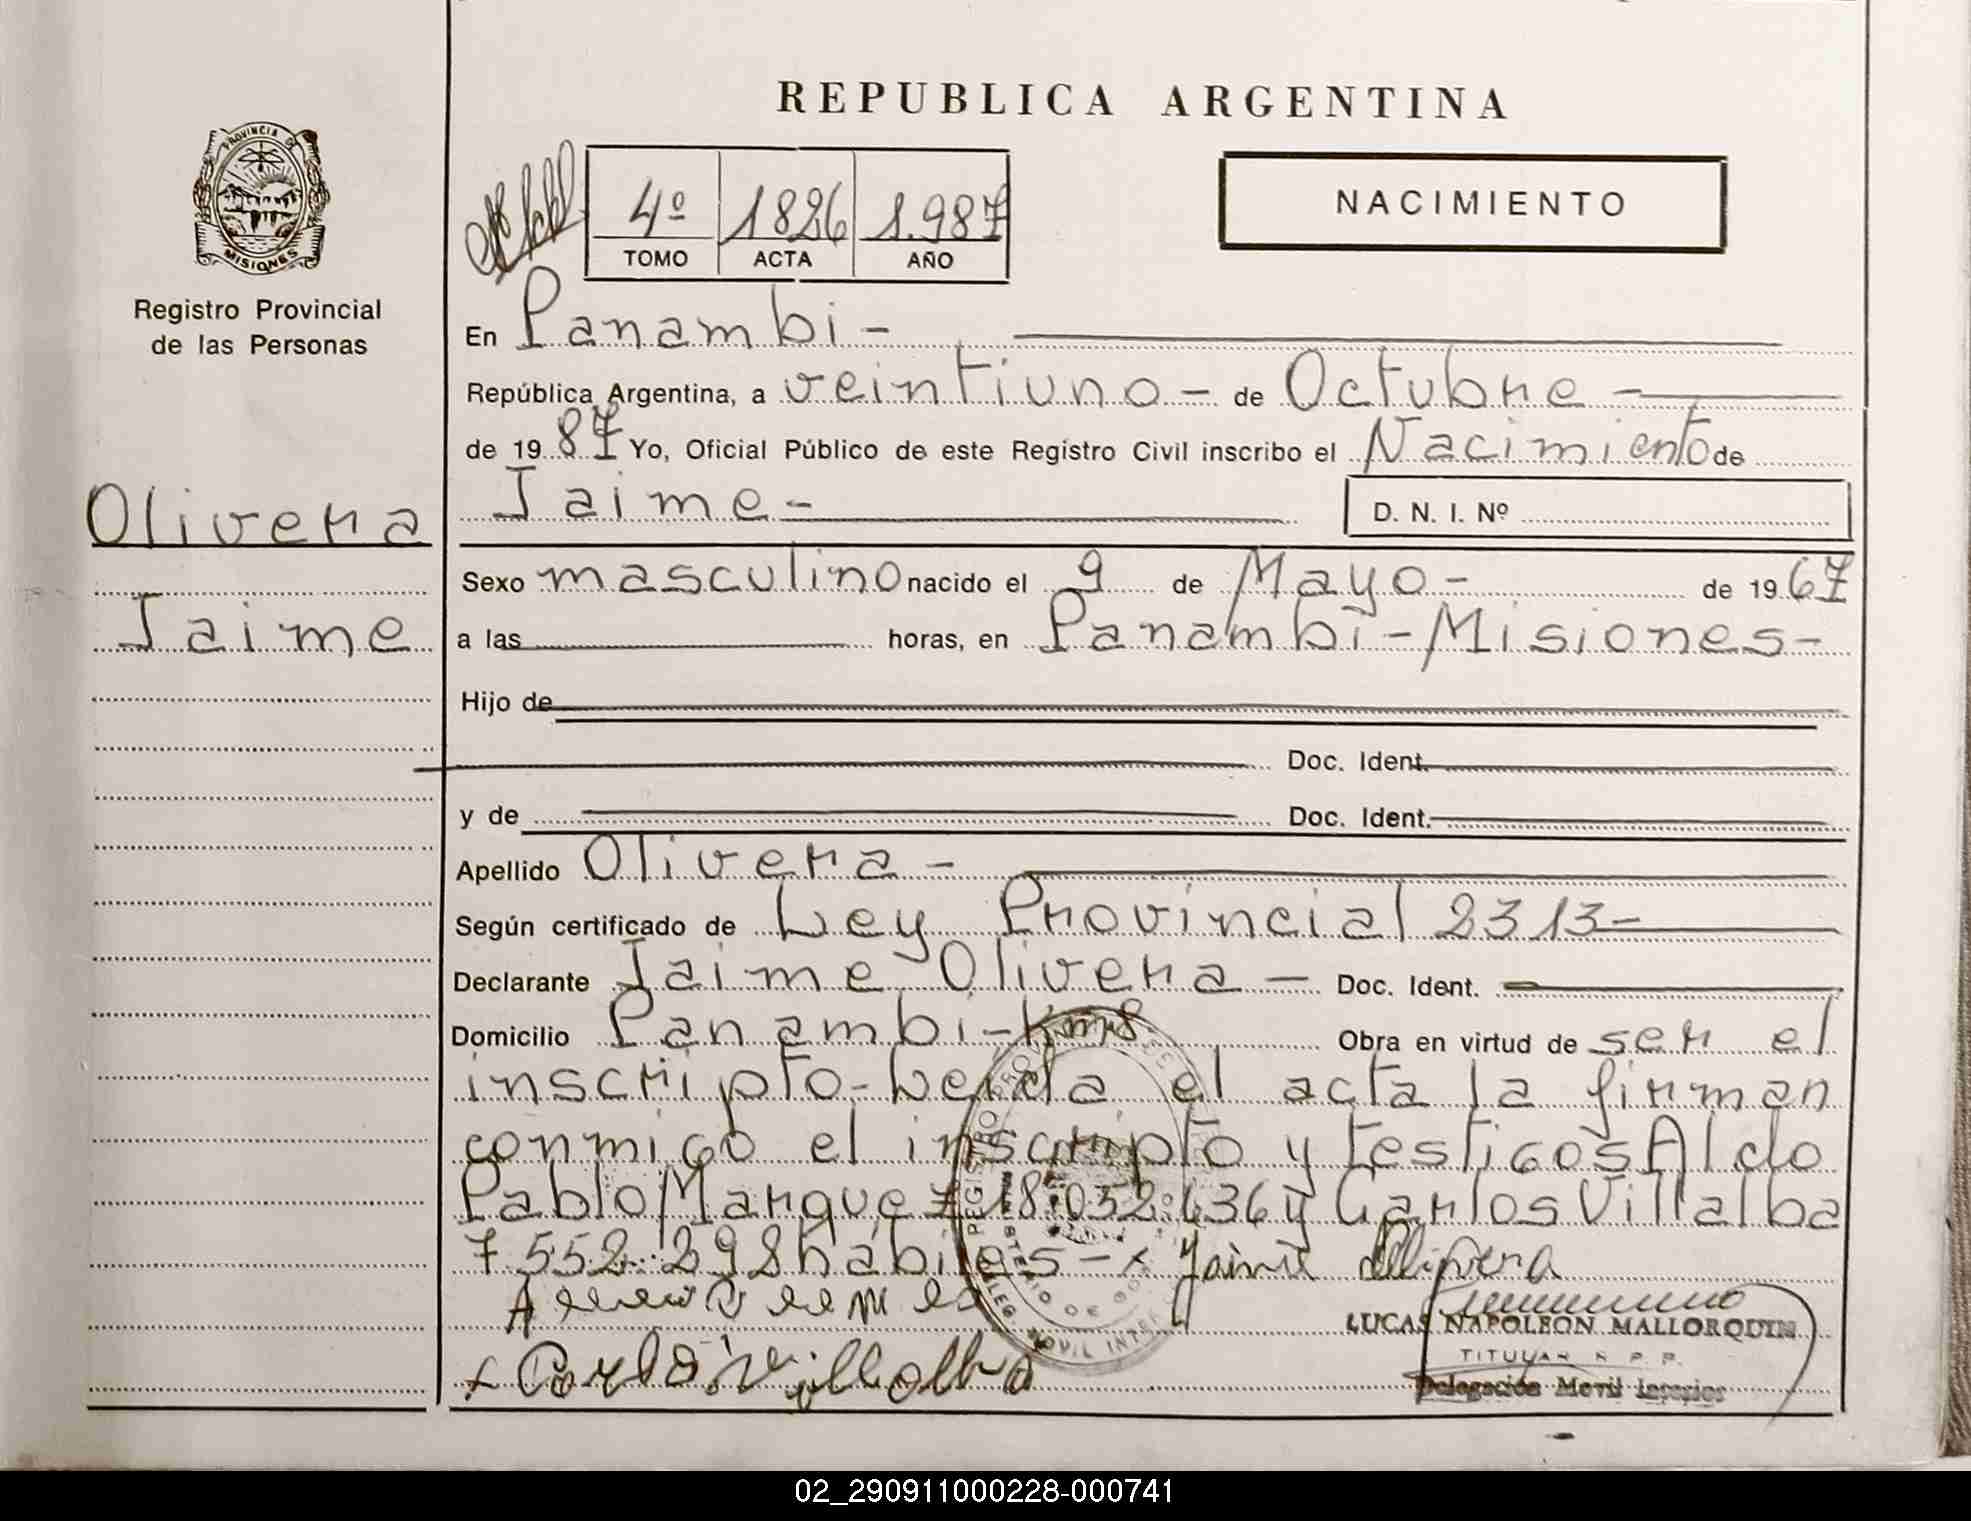 REPUBLICA ARGENTINA
PROVINCIA DE
MISIONES
Registro Provincial
de las Personas
4º 1826 1.987
TOMO ACTA AÑO
NACIMIENTO
En Panambi -
República Argentina, a veintiuno - de Octubre -
de 19 87 Yo, Oficial Público de este Registro Civil inscribo el Nacimiento de
Jaime -
D. N. I. Nº
Olivera
Jaime
Sexo masculino nacido el 9 de Mayo - de 19 67
a las horas, en Panambi - Misiones -
Hijo de
Doc. Ident.
y de Doc. Ident.
Apellido Olivera -
Según certificado de Ley Provincial 2313 -
Declarante Jaime Olivera - Doc. Ident.
Domicilio Panambi - Km 8 Obra en virtud de ser el
inscripto - Leida el acta la firman
conmigo el inscripto y testigos Aldo
Pablo Marquez 18.052.636 y Carlos Villalba
7.552.298 hábiles - x Jaime Olivera
x Carlos Villalba
LUCAS NAPOLEON MALLORQUIN
TITULAR R. P. P.
Delegación Movil Interior
02_290911000228-000741